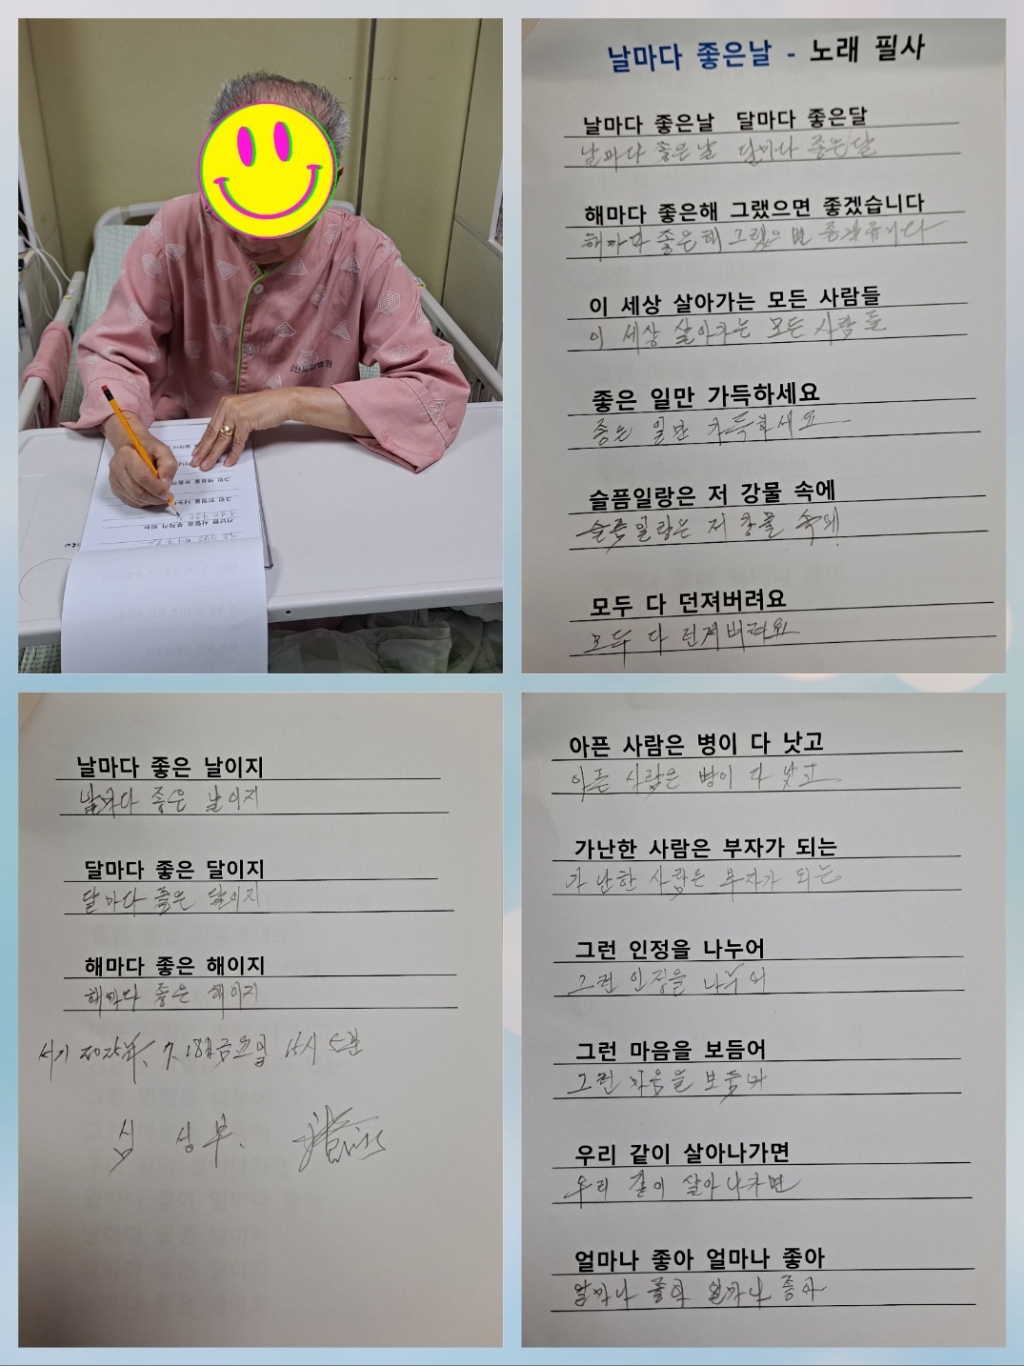 날마다 좋은날 - 노래 필사
날마다 좋은날 달마다 좋은달
날마다 좋은날 달마다 좋은달
해마다 좋은해 그랬으면 좋겠습니다
해마다 좋은해 그랬으면 좋겠습니다
이 세상 살아가는 모든 사람들
이 세상 살아가는 모든 사람들
좋은 일만 가득하세요
좋은 일만 가득하세요
슬픔일랑은 저 강물 속에
슬픔일랑은 저 강물 속에
모두 다 던져버려요
모두 다 던져버려요
날마다 좋은 날이지
날마다 좋은 날이지
달마다 좋은 달이지
달마다 좋은 달이지
해마다 좋은 해이지
해마다 좋은 해이지
서기 2025년 7. 18일 금요일 15시 5분
심 성 부.
아픈 사람은 병이 다 낫고
아픈 사람은 병이 다 낫고
가난한 사람은 부자가 되는
가난한 사람은 부자가 되는
그런 인정을 나누어
그런 인정을 나누어
그런 마음을 보듬어
그런 마음을 보듬어
우리 같이 살아나가면
우리 같이 살아나가면
얼마나 좋아 얼마나 좋아
얼마나 좋아 얼마나 좋아